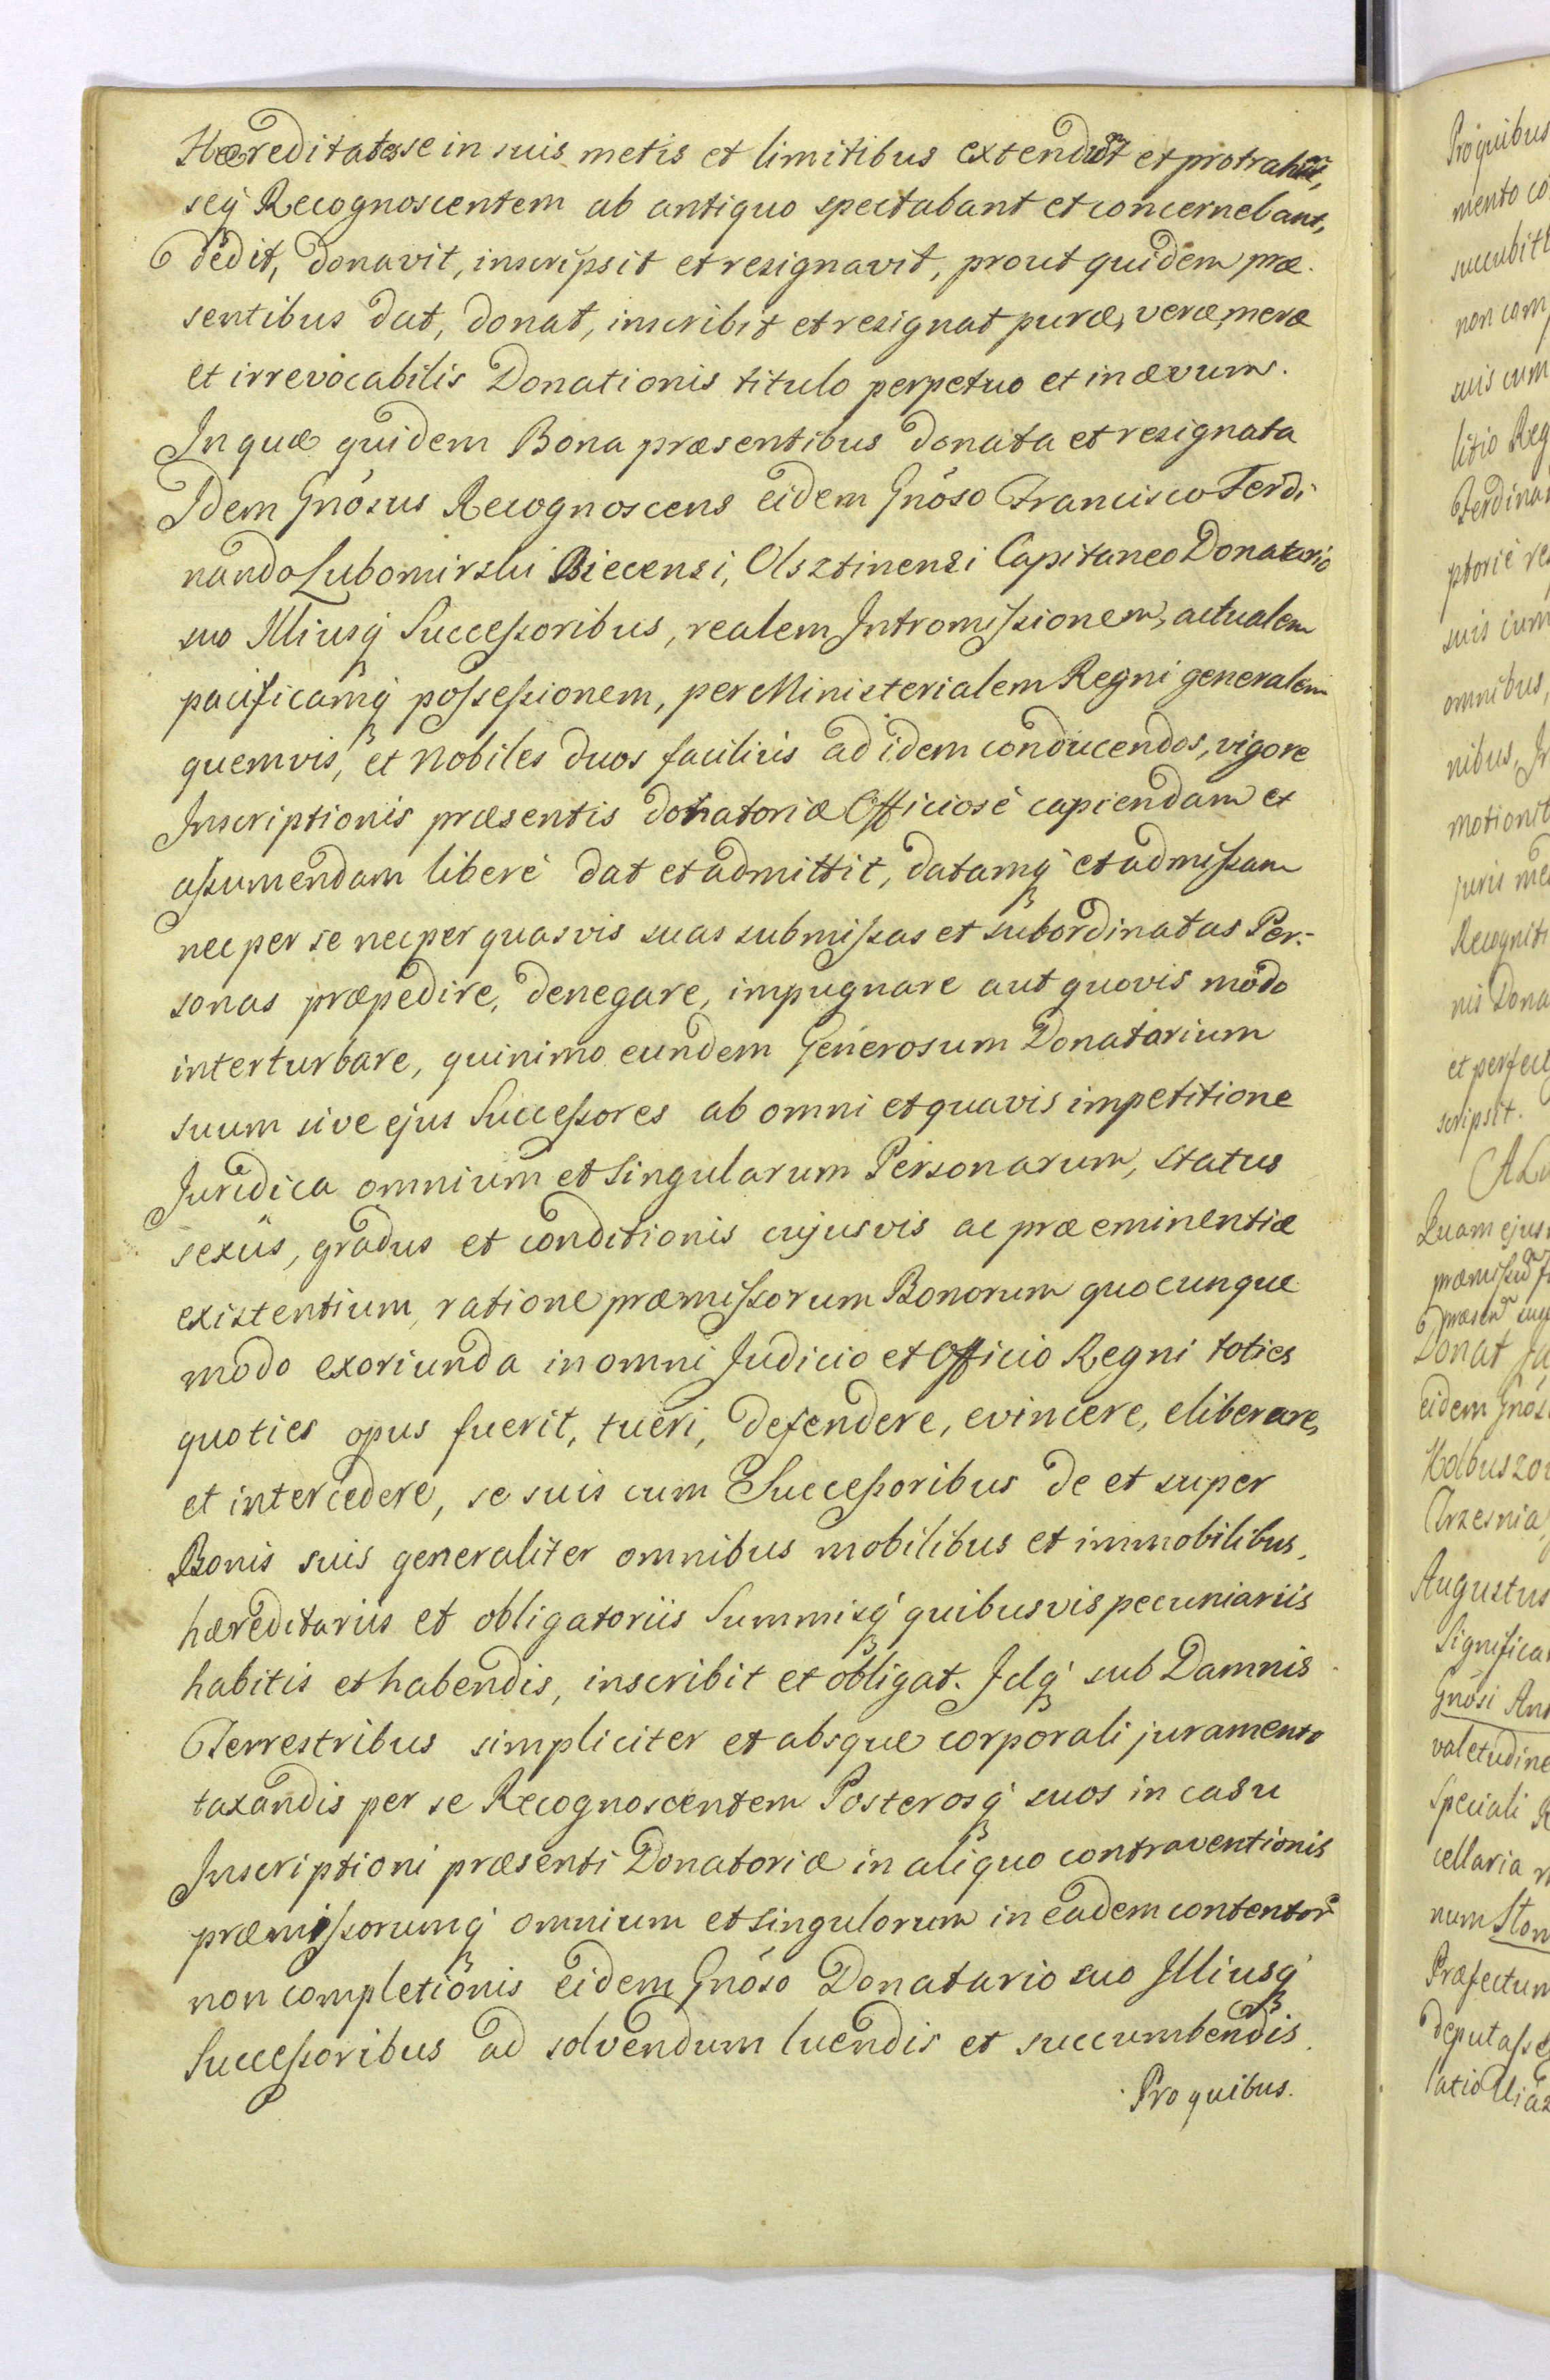 Hæreditates se in suis metis et limitibus extendũt et protrahũt,
seq́ Recognoscentem ab antiquo spectabant et concernebant,
dedit, donavit, inscripsit et resignavit, prout quidem præ-
sentibus dat, donat, inscribit et resignat puræ, veræ, meræ
et irrevocabilis Donationis titulo perpetuo et in ævum.
In quæ quidem Bona præsentibus donata et resignata
Idem Gnōsus Recognoscens eidem Gnōso Francisco Ferdi-
nando Lubomirski Biecensi, Olsztinensi Capitaneo Donatario
suo Illiusq́ Succeſsoribus, realem Intromiſsionem, actualem
pacificamq́ poſseſsionem, per Ministerialem Regni generalem
quemvis, et Nobiles duos faciliùs ad idem conducendos, vigore
Inscriptionis præsentis donatoriæ Officiosè capiendam et
aſsumendam liberè dat et admittit, datamq́ et admiſsam
nec per se nec per quasvis suas submiſsas et subordinatas Per-
sonas præpedire, denegare, impugnare aut quovis modo
interturbare, quinimo eundem Generosum Donatarium
suum sive ejus Succeſsores ab omni et quavis impetitione
Juridica omnium et singularum Personarum, status
sexûs, gradus et conditionis cujusvis ac præeminentiæ
existentium, ratione præmiſsorum Bonorum quocunque
modo exoriunda in omni Judicio et Officio Regni toties
quoties opus fuerit, tueri, defendere, evincere, eliberare,
et intercedere, se suis cum Succeſsoribus de et super
Bonis suis generaliter omnibus mobilibus et immobilibus,
hæreditariis et obligatoriis Summisq́ quibusvis pecuniariis
habitis et habendis, inscribit et obligat. Idq́ sub Damnis
Terrestribus simpliciter et absque corporali juramento
taxandis per se Recognoscentem Posterosq́ suos in casu
Inscriptioni præsenti Donatoriæ in aliquo contraventionis
præmiſsorumq́ omnium et singulorum in eadem contentor̃
non completionis eidem Gnōso Donatario suo Illiusq́
Succeſsoribus ad solvendum luendis et succumbendis.
Pro quibus.
Pro quibus
mento co
succubit
non com
suis cum
litio Reg
Ferdinan
ptoriè re
suis cum
omnibus,
nibus, In
motionib
juris me
Recogniti
nis Dona
et perfec
scripsit.
Quam ejus
Donat
eidem Gnōs
Augustus
Significa
Gnōsi An
valetudine
speciali
cellaria
num Ston
Præfectum
deputaſse